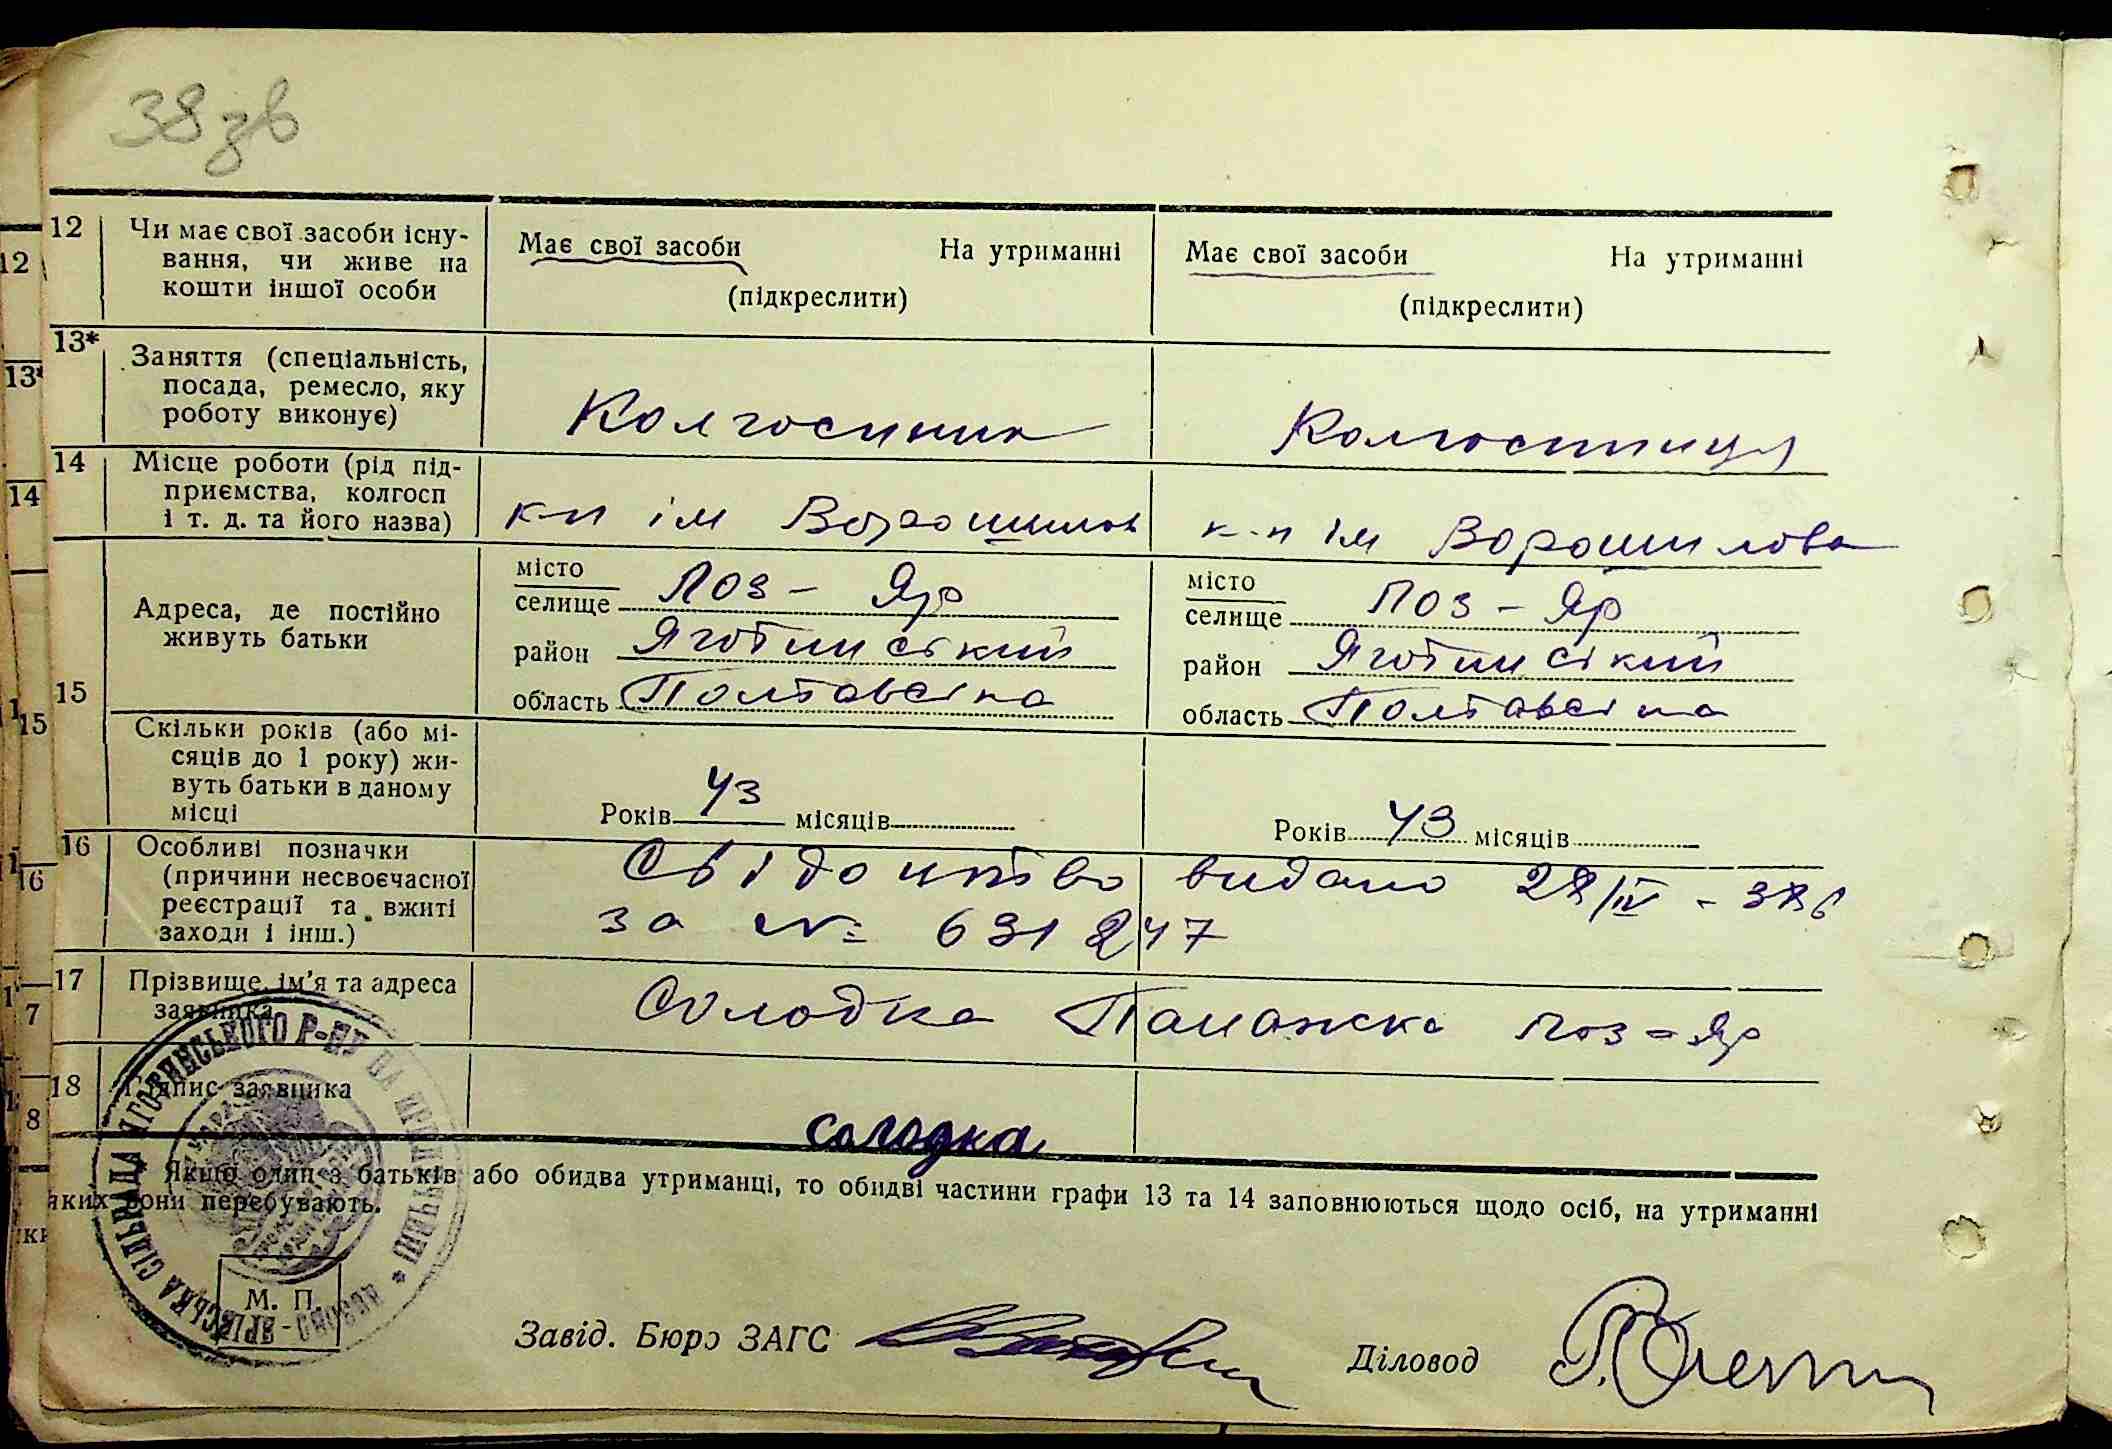 38 зв
12 Чи має свої засоби існу-
вання, чи живе на
кошти іншої особи
Має свої засоби На утриманні
(підкреслити)
Має свої засоби На утриманні
(підкреслити)
13* Заняття (спеціальність,
посада, ремесло, яку
роботу виконує)
Колгоспник
Колгоспниця
14 Місце роботи (рід під-
приємства, колгосп
і т. д. та його назва)
к-п ім Ворошилов
к-п ім Ворошилова
15 Адреса, де постійно
живуть батьки
місто
селище Лоз-Яр
район Яготинський
область Полтавсіка
місто
селище Лоз-Яр
район Яготинський
область Полтавсіка
Скільки років (або мі-
сяців до 1 року) жи-
вуть батьки в даному
місці
Років 43 місяців
Років 43 місяців
16 Особливі позначки
(причини несвоєчасної
реєстрації та вжиті
заходи і інш.)
Свідоцтво видано 28/IV -
за № 631247
17 Прізвище, ім'я та адреса
заявника
Солодка Лоз-Яр
18 Підпис заявника
Солодка
* Якщо один з батьків або обидва утриманці, то обидві частини графи 13 та 14 заповнюються щодо осіб, на утриманні
яких вони перебувають.
ЯРІВСЬКА СІЛЬРАДА ЯГОТИНСЬКОГО Р-НУ
М. П.
Завід. Бюро ЗАГС
Діловод